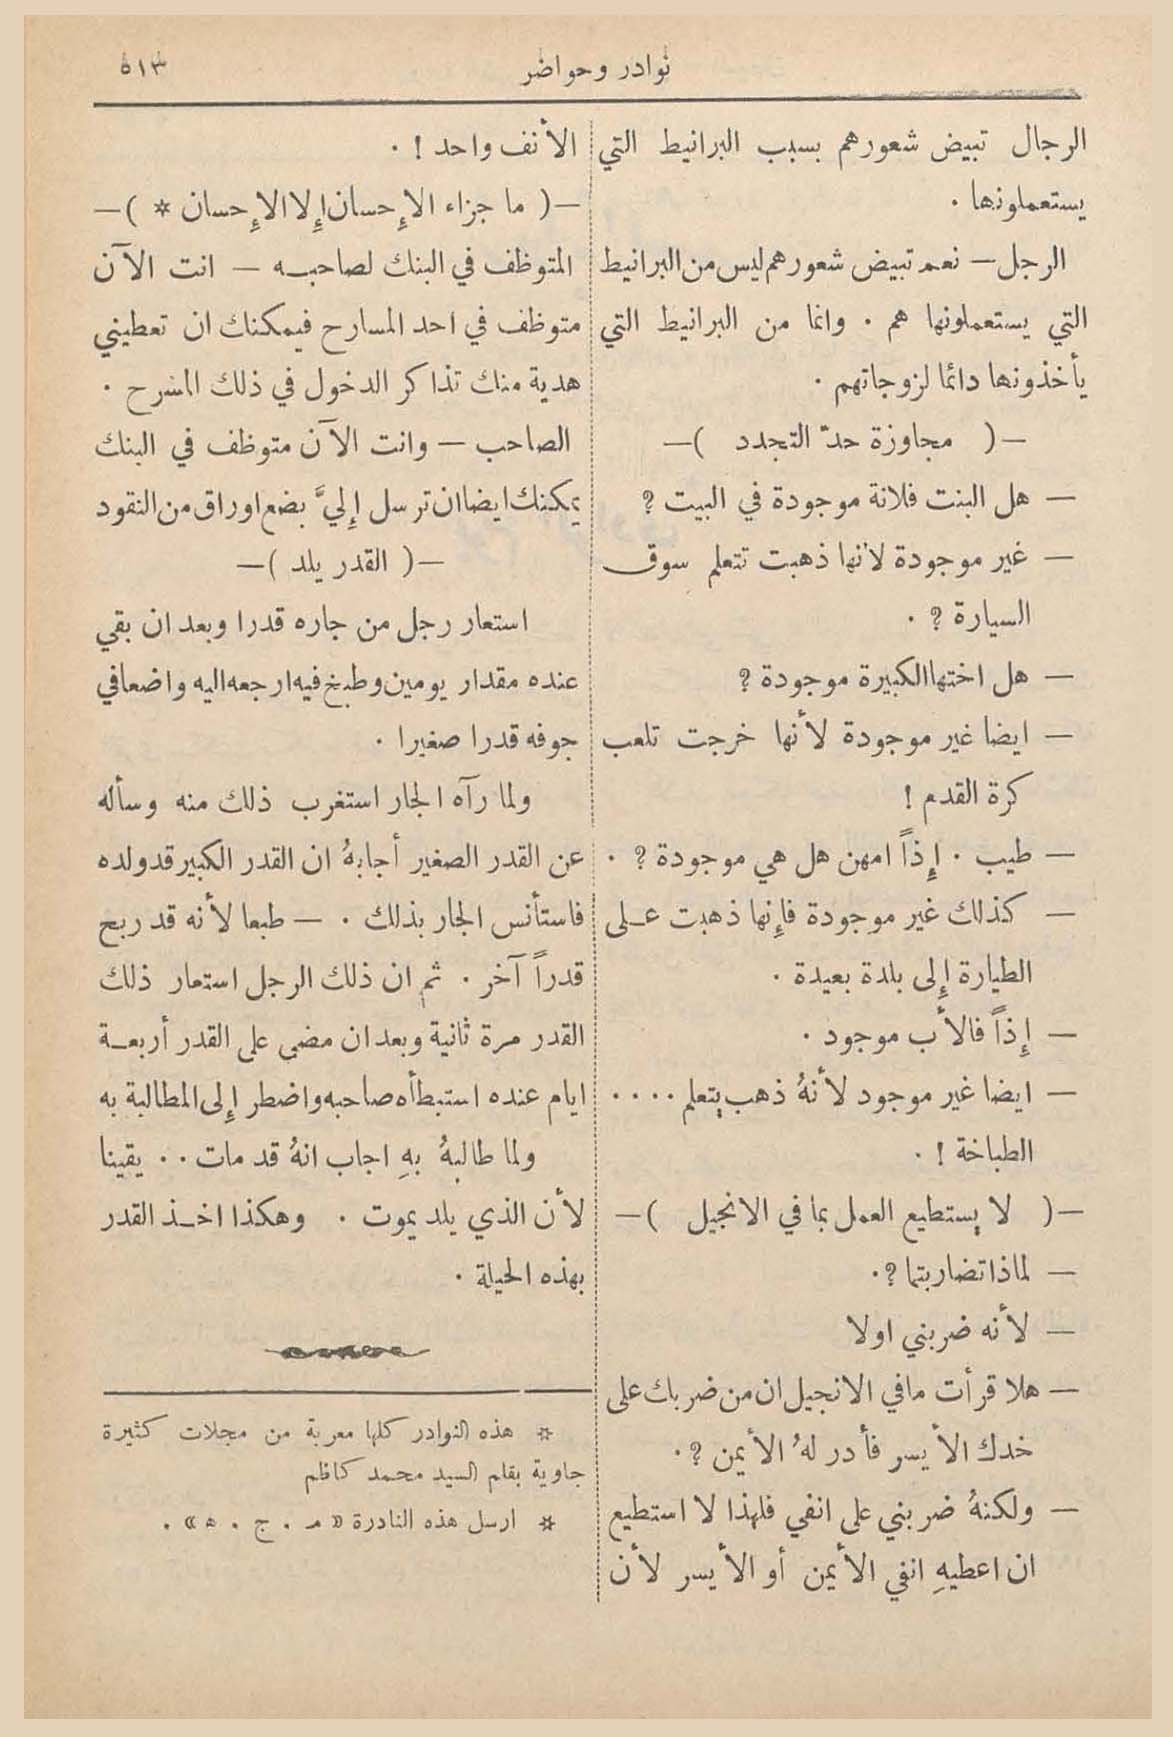 نوادر وحواضر
٥١٣
الرجال تبيض شعورهم بسبب البرانيط التي
يستعملونها .
الرجل — نعم تبيض شعورهم ليس من البرانيط
التي يستعملونها هم . وانما من البرانيط التي
يأخذونها دائما لزوجاتهم .
—( مجاوزة حدّ التجدد )—
— هل البنت فلانة موجودة في البيت ؟
— غير موجودة لأنها ذهبت تتعلم سوق
السيارة ؟ .
— هل اختها الكبيرة موجودة ؟
— ايضا غير موجودة لأنها خرجت تلعب
كرة القدم !
— طيب . إذاً امهن هل هي موجودة ؟ .
— كذلك غير موجودة فإنها ذهبت عـلى
الطيارة إلى بلدة بعيدة .
— إذاً فالأب موجود .
— ايضا غير موجود لأنهُ ذهب يتعلم ....
الطباخة ! .
—( لا يستطيع العمل بما في الانجيل )—
— لماذا تضاربتما ؟.
— لأنه ضربني اولا
— هلا قرأت مافي الانجيل ان من ضربك على
خدك الأيسر فأدر لهُ الأيمن ؟ .
— ولكنهُ ضربني على انفي فلهذا لا استطيع
ان اعطيهِ انفي الأيمن أو الأيسر لأن
الأنف واحد ! .
—( ما جزاء الإحسان إلا الإحسان * )—
المتوظف في البنك لصاحبـه — انت الآن
متوظف في احد المسارح فيمكنك ان تعطيني
هدية منك تذاكر الدخول في ذلك المسرح .
الصاحب — وانت الآن متوظف في البنك
يمكنك ايضا ان ترسل إليَّ بضع اوراق من النقود
—( القدر يلد )—
استعار رجل من جاره قدرا وبعد ان بقي
عنده مقدار يومين وطبخ فيه ارجعه اليه واضعا في
جوفه قدرا صغيرا .
ولما رآه الجار استغرب ذلك منه وسأله
عن القدر الصغير أجابهُ ان القدر الكبير قد ولده
فاستأنس الجار بذلك . — طبعا لأنه قد ربح
قدراً آخر . ثم ان ذلك الرجل استعار ذلك
القدر مرة ثانية وبعد ان مضى على القدر أربعـة
ايام عنده استبطأه صاحبه واضطر إلى المطالبة به
ولما طالبهُ بهِ اجاب انهُ قد مات .. يقينا
لأن الذي يلد يموت . وهكذا اخـذ القدر
بهذه الحيلة .
* هذه النوادر كلها معربة من مجلات كثيرة
جاوية بقلم السيد محمد كاظم
* ارسل هذه النادرة « م . ج . ه » .